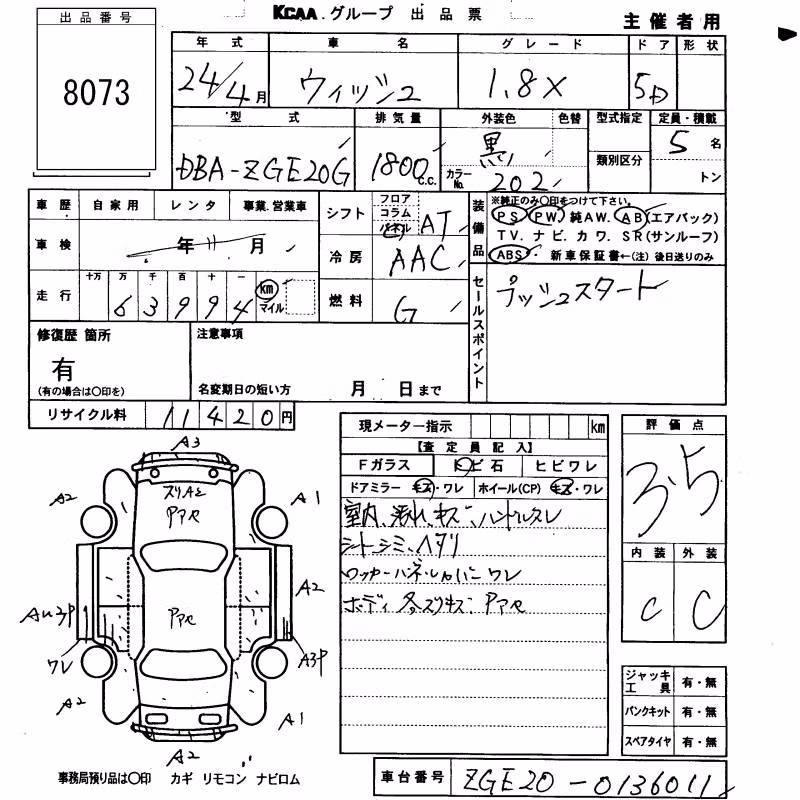 KCAA グループ 出品票
主催者用
出品番号
8073
年式 車名 グレード ドア 形状
24/4月 ウィッシュ 1.8X 5D
型式 排気量 外装色 色替 型式指定 定員・積載
DBA-ZGE20G 1800c.c. 黒 カラーNo. 202 類別区分 5名 トン
車歴 自家用 レンタ 事業.営業車
車検 年 11月
走行 十万 万 千 百 十 一
6 3 9 9 4 km マイル
シフト フロア コラム パネル AT
冷房 AAC
燃料 G
装備品
※純正のみ○印をつけて下さい。
PS PW 純AW. AB(エアバック)
TV. ナビ. カワ. SR(サンルーフ)
ABS 新車保証書←(注)後日送りのみ
セールスポイント
プッシュスタート
修復歴 箇所
有
(有の場合は○印を)
注意事項
名変期日の短い方 月 日まで
リサイクル料 11420円
現メーター指示 km
【査定員記入】
Fガラス トビ石 ヒビワレ
ドアミラー キズ・ワレ ホイール(CP) キズ・ワレ
室内、汚れ、キズ、ハンドルスレ
シートシミ、ヘタリ
ロッカーパネルカバー ワレ
ボディ 各スリキズ Pアセ
評価点
3.5
内装 外装
C C
ジャッキ工具 有・無
パンクキット 有・無
スペアタイヤ 有・無
A3
スリキズ
Pアセ
A2
A1
A2
Pアセ
ワレ
A3P
A2
A1
A2
事務局預り品は○印 カギ リモコン ナビロム
車台番号 ZGE20-0136011